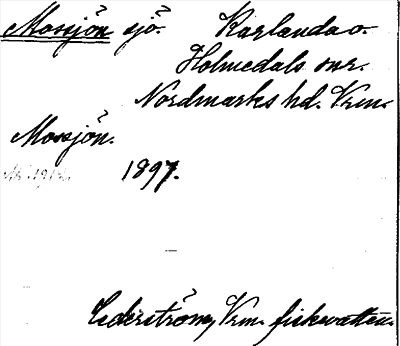 Mossjön sjö. Karlanda o.
Holmedals snr.
Nordmarks hd. Vrm.
Mossjön.
1897.
Cederström, Vrm. fiskvatten.